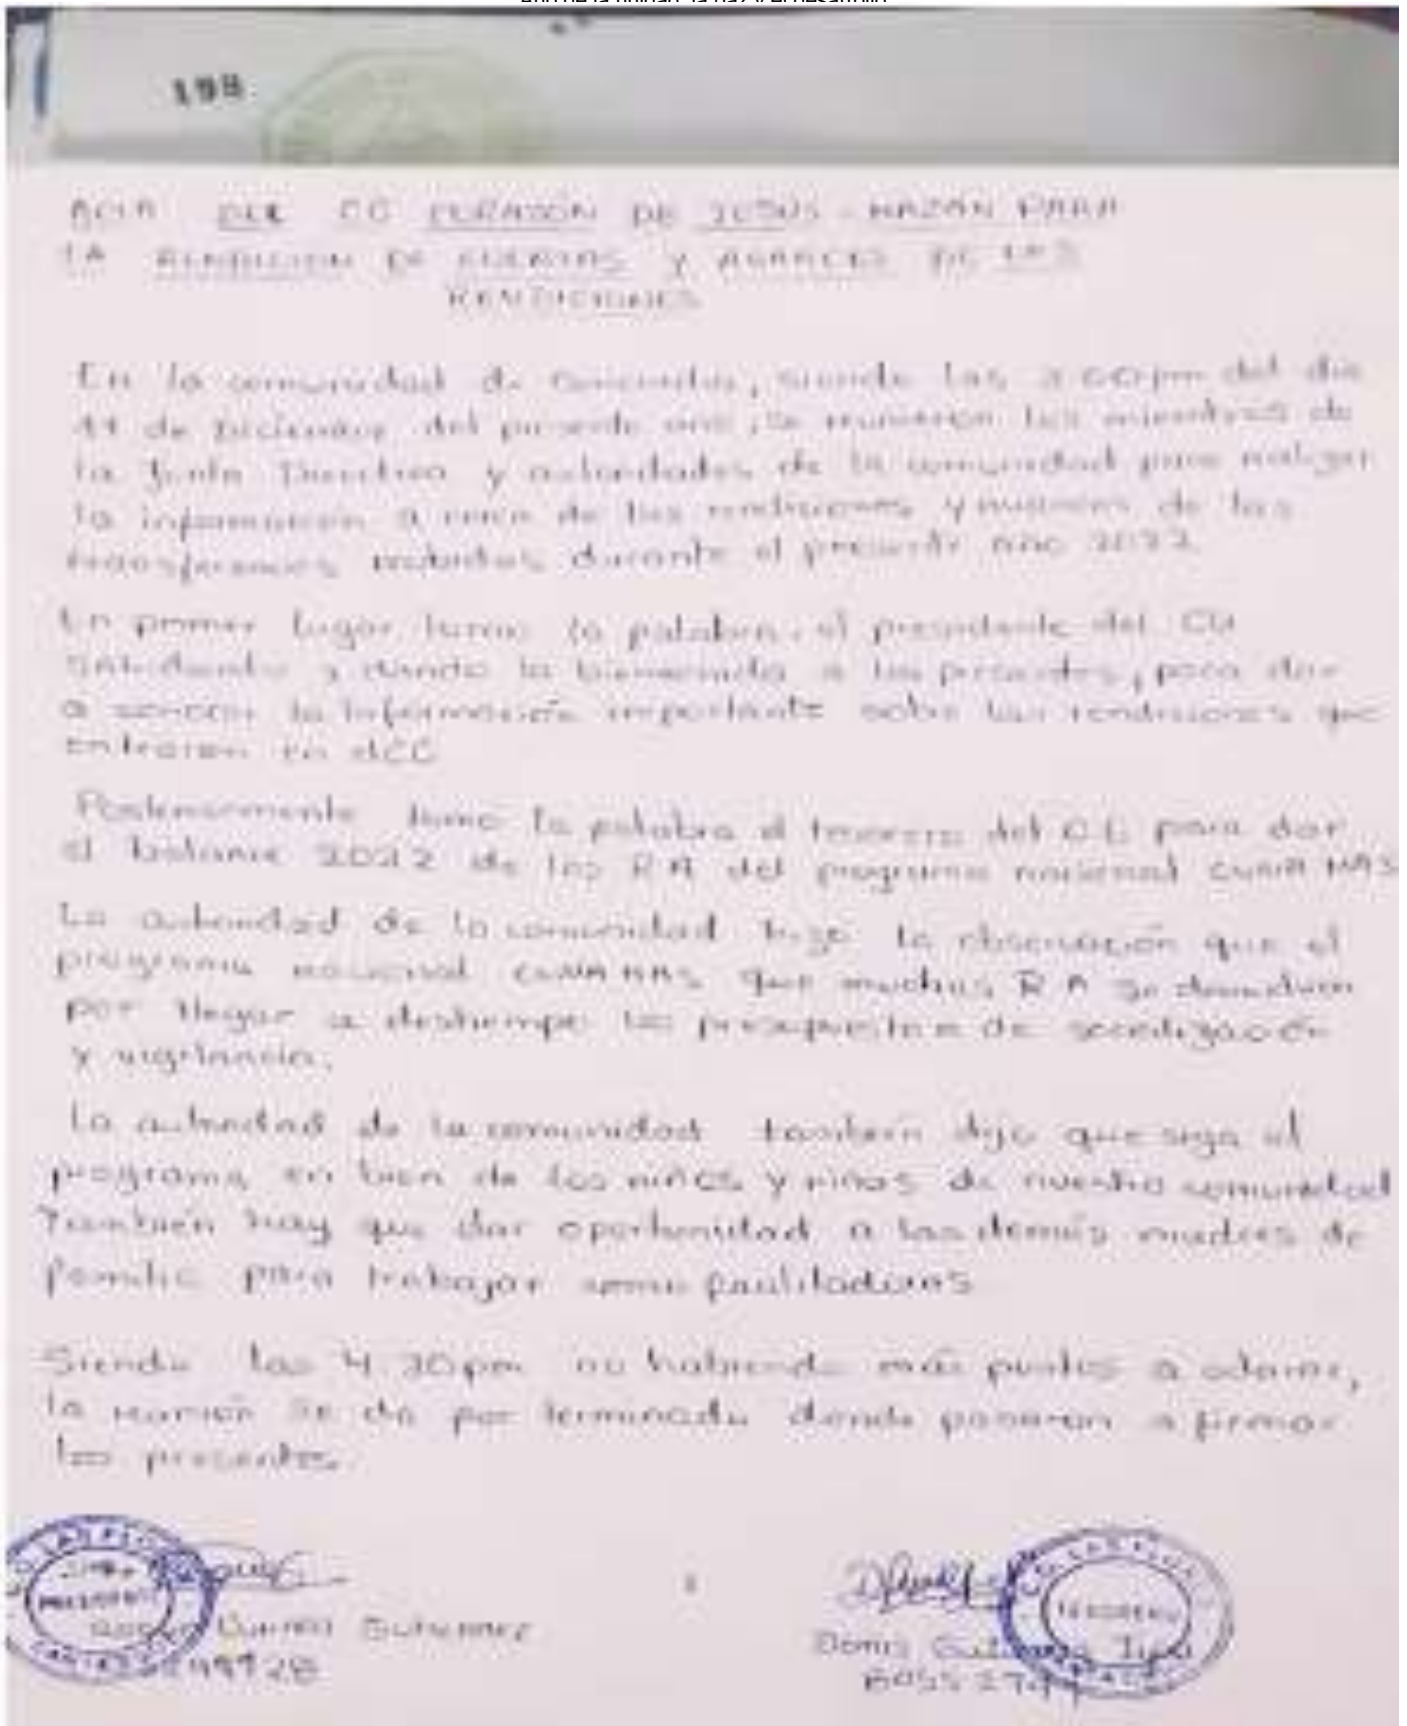 Año de la unidad, la paz y el desarrollo
198
ACTA DEL CC CORAZÓN DE JESUS - MAZÁN PARA
LA RENDICION DE CUENTAS Y AVANCES DE LAS
RENDICIONES
En la comunidad de siendo las 3:00 pm del dia
11 de Diciembre del presente año, se reunieron los miembros de
la Junta Directiva y autoridades de la comunidad para realizar
la información a cerca de las rendiciones y avances de las
transferencias recibidas durante el presente año 2022.
En primer lugar tomo la palabra, el presidente del CG
saludando y dando la bienvenida a los presentes, para dar
a conocer la información importante sobre las rendiciones que
entraron en el CC
Posteriormente tomo la palabra el tesorero del CG para dar
el balance 2022 de los RA del programa nacional CUNA MAS
La autoridad de la comunidad hizo la observación que el
programa nacional CUNA MAS que muchas RA se
por llegar a destiempo los presupuestos de
y vigilancia.
La autoridad de la comunidad también dijo que siga el
programa en bien de los niños y niñas de nuestra comunidad
También hay que dar oportunidad a las demás madres de
familia para trabajar como facilitadoras
Siendo las 4:30 pm no habiendo más puntos a
la reunión se da por terminada donde pasaron a firmar
los presentes.
PRESIDENTE
TESORERO